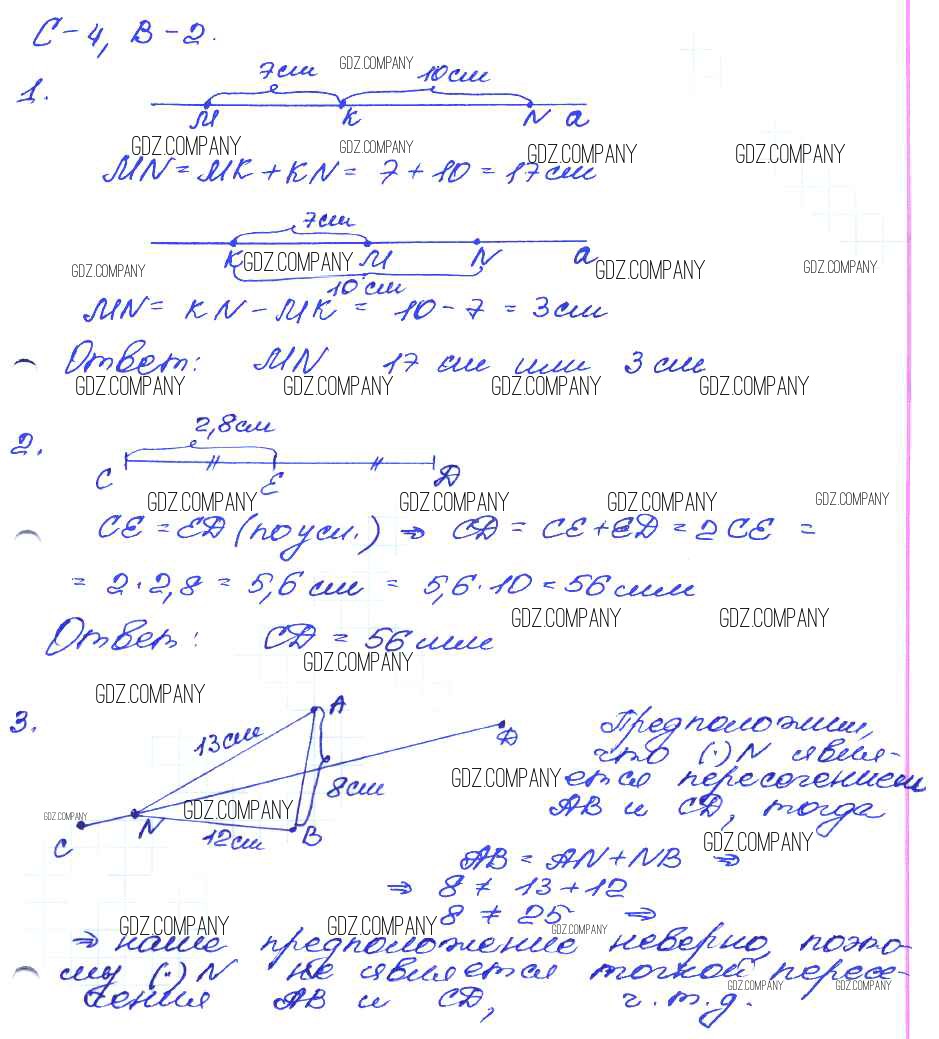 С-4, В-2.
7см GDZ.COMPANY 10см
1.
М К N а
GDZ.COMPANY GDZ.COMPANY GDZ.COMPANY GDZ.COMPANY
MN = MK + KN = 7 + 10 = 17см
7см
K GDZ.COMPANY M N a GDZ.COMPANY GDZ.COMPANY
GDZ.COMPANY
10 см
MN = KN - MK = 10 - 7 = 3см
Ответ: MN 17 см или 3 см
GDZ.COMPANY GDZ.COMPANY GDZ.COMPANY GDZ.COMPANY
2,8см
2.
C E D
GDZ.COMPANY GDZ.COMPANY GDZ.COMPANY GDZ.COMPANY
CE = ED (по усл.) ⇒ CD = CE + ED = 2CE =
= 2·2,8 = 5,6 см = 5,6·10 = 56мм
GDZ.COMPANY GDZ.COMPANY
Ответ: CD = 56мм
GDZ.COMPANY
GDZ.COMPANY
3. A
13см D Предположим,
что (·) N явля-
8см GDZ.COMPANY ется пересечением
GDZ.COMPANY GDZ.COMPANY AB и CD, тогда
C N 12см B
GDZ.COMPANY
AB = AN + NB ⇒
⇒ 8 ≠ 13 + 12
8 ≠ 25 ⇒
GDZ.COMPANY GDZ.COMPANY GDZ.COMPANY
⇒ наше предположение неверно, поэто-
му (·) N не является точкой пересе-
GDZ.COMPANY GDZ.COMPANY
чения AB и CD, ч.т.д.